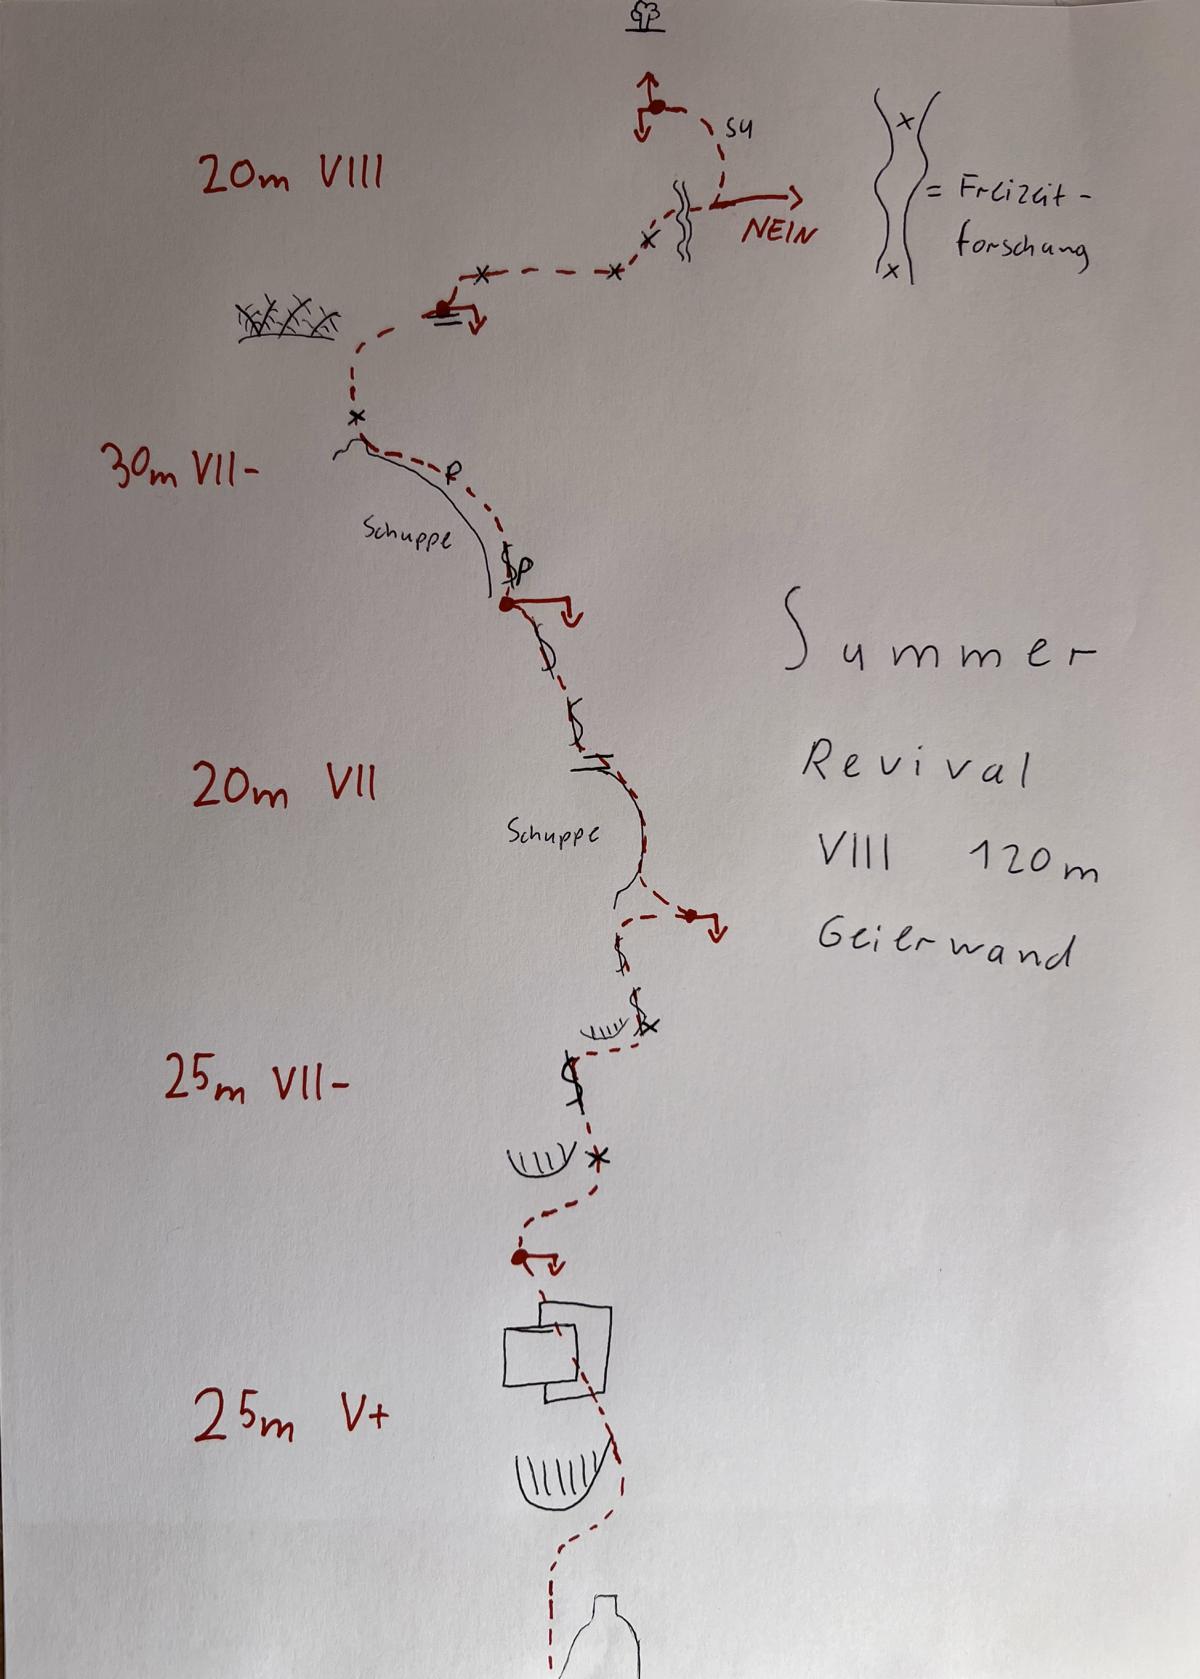 SU
20m VIII
= Freizeit-
forschung
NEIN
30m VII-
Schuppe
Summer
Revival
20m VII
Schuppe
VIII 120m
Geierwand
25m VII-
25m V+